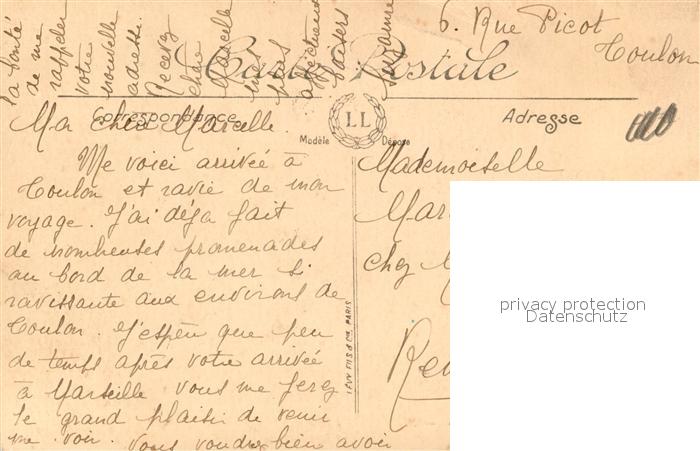 6. Rue Picot
Toulon
Carte Postale
Correspondance
Modèle
LL
Déposé
Adresse
Ma chère Marcelle.
Me voici arrivée à
Toulon et ravie de mon
voyage. J'ai déja fait
de nombreuses promenades
au bord de la mer si
ravissante aux environs de
Toulon. J'espère que peu
de temps après votre arrivée
à Marseille vous me ferez
le grand plaisir de venir
me voir. Vous voudrez bien avoir
la bonté
de me
rappeler
votre
nouvelle
adresse.
Recevez
chère
Marcelle
mes
plus
affectueux
baisers
Suzanne
Mademoiselle
Mar
chez M
LEVY FILS & Cie, PARIS
privacy protection
Datenschutz